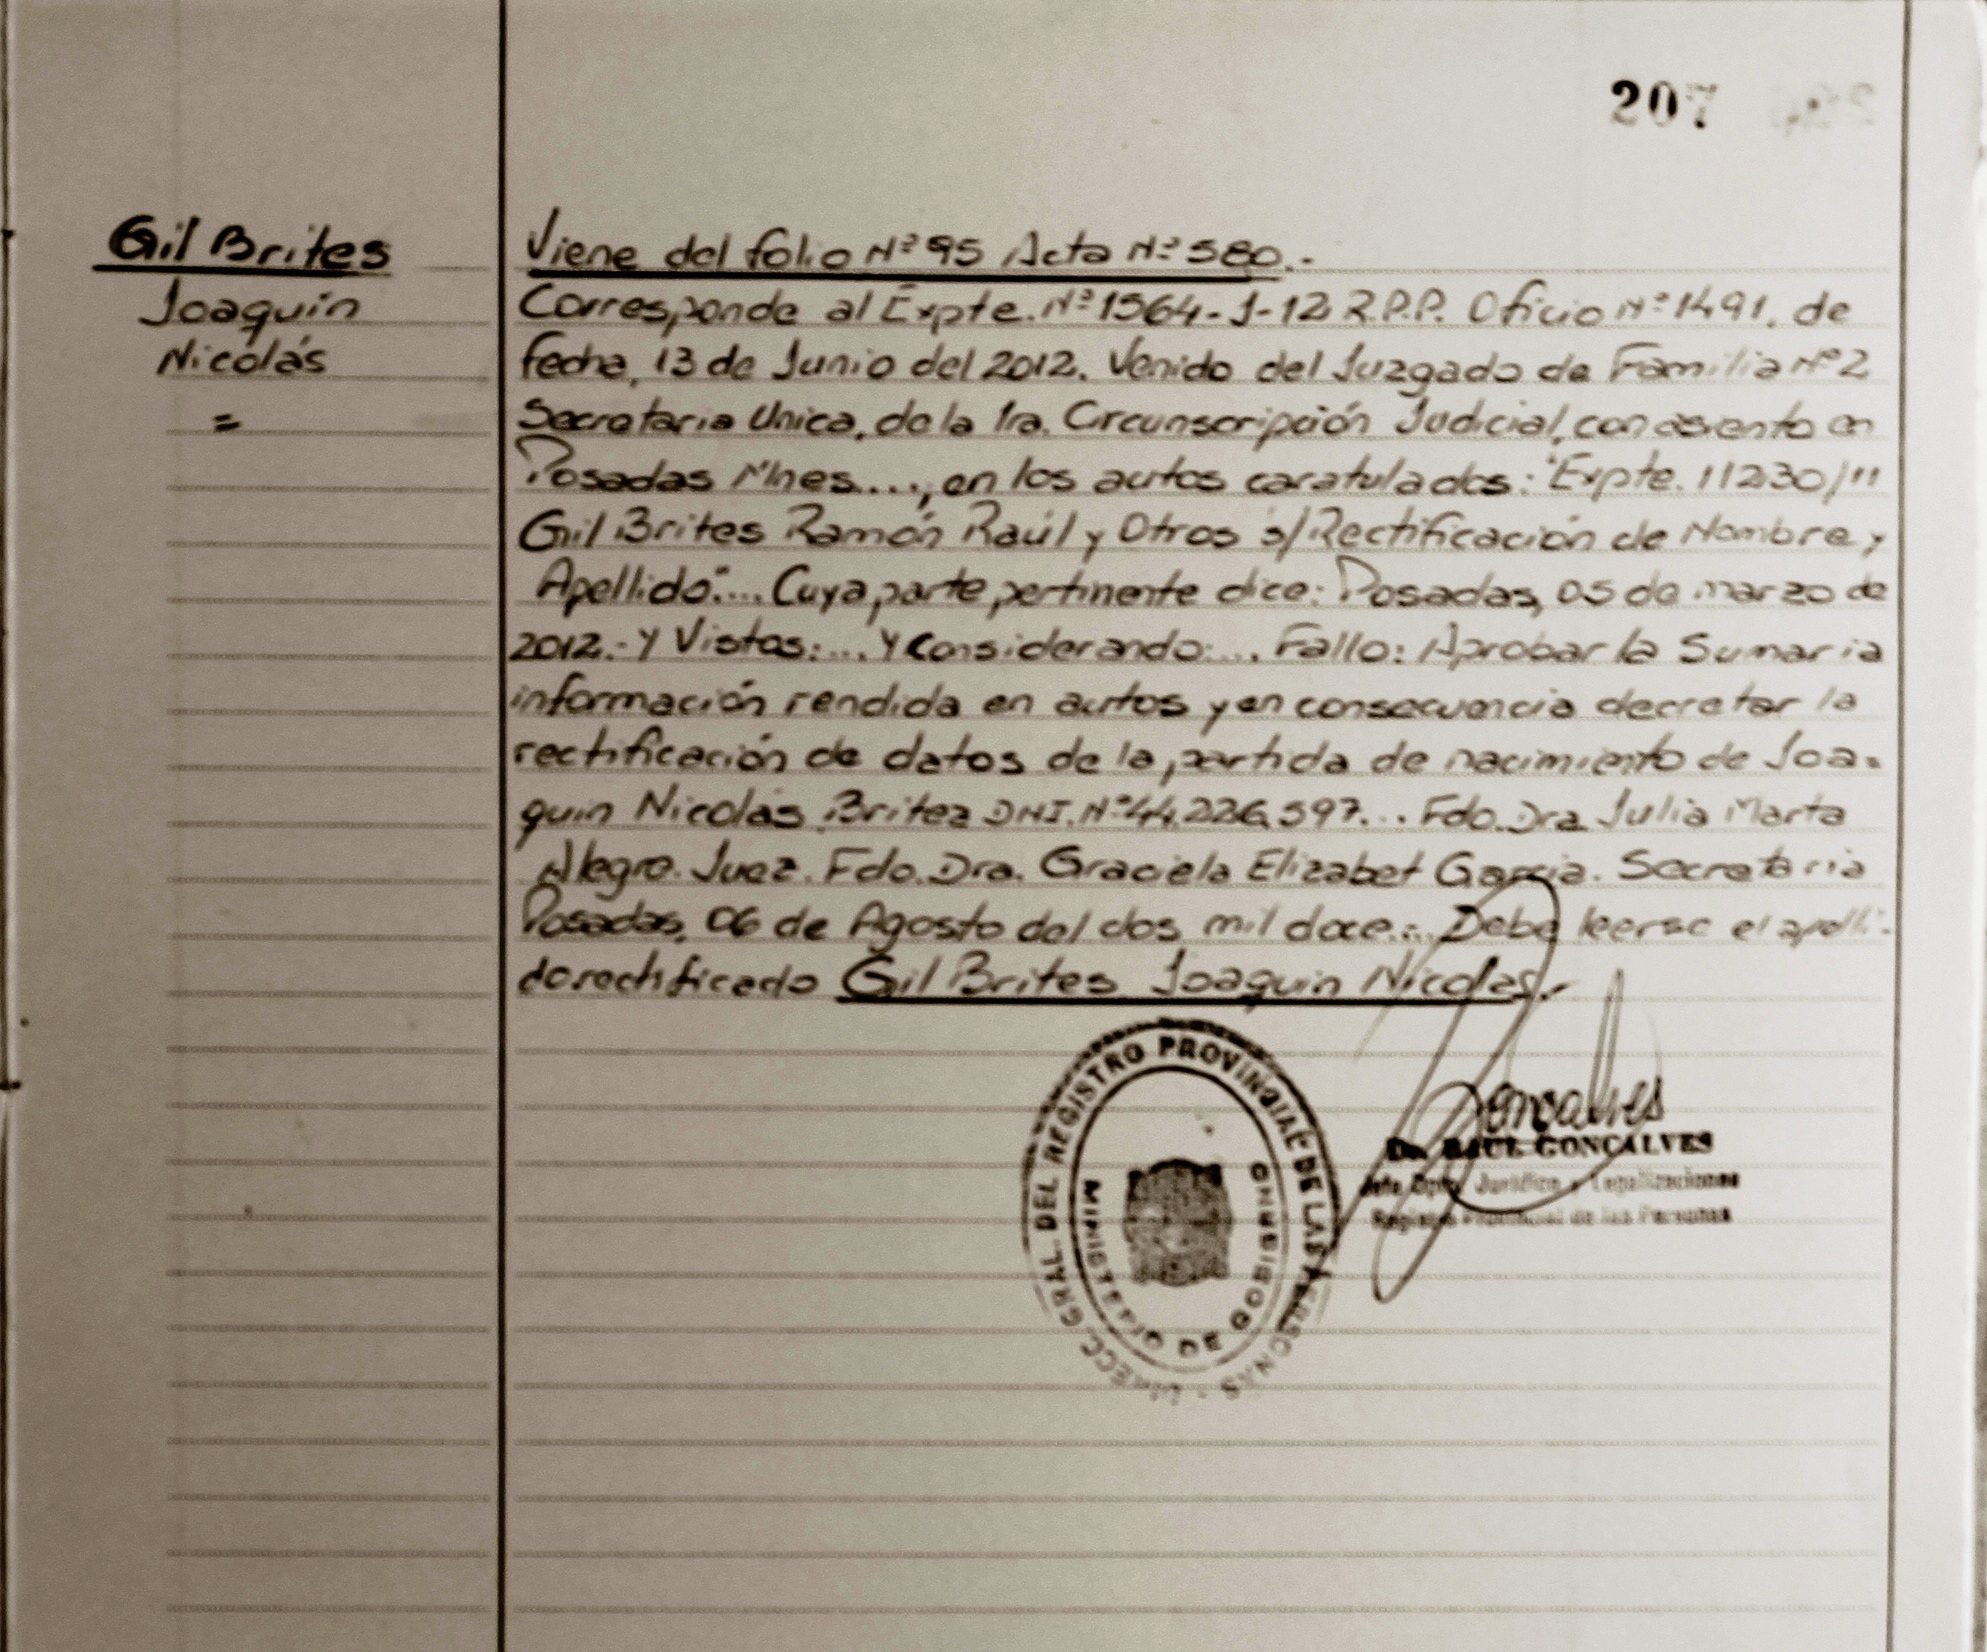 207
Gil Brites
Joaquín
Nicolás
=
Viene del folio Nº 95 Acta Nº 580.-
Corresponde al Expte. Nº 1564-J-12 R.P.P. Oficio Nº 1491, de
fecha, 13 de Junio del 2012. Venido del Juzgado de Familia Nº 2
Secretaria Unica, de la 1ra. Circunscripción Judicial, con asiento en
Posadas Mnes...., en los autos caratulados: "Expte. 11230/11
Gil Brites Ramón Raúl y Otros s/Rectificación de Nombre y
Apellido".... Cuya parte pertinente dice: Posadas, 05 de marzo de
2012.- Y Vistos:... Y Considerando:... Fallo: Aprobar la Sumaria
información rendida en autos y en consecuencia decretar la
rectificación de datos de la partida de nacimiento de Joa-
quin Nicolás Britez DNI. Nº 44.226.597... Fdo. Dra Julia Marta
Alegre. Juez. Fdo. Dra. Graciela Elizabet Garcia. Secretaria
Posadas, 06 de Agosto del dos mil doce.- Debe leerse el apelli-
do rectificado Gil Brites Joaquin Nicolas.-
DIRECC. GRAL. DEL REGISTRO PROVINCIAL DE LAS PERSONAS
MINISTERIO DE GOBIERNO
Goncalves
Dr. RAUL GONCALVES
Jefe Dpto. Jurídico y Legalizaciones
Registro Provincial de las Personas